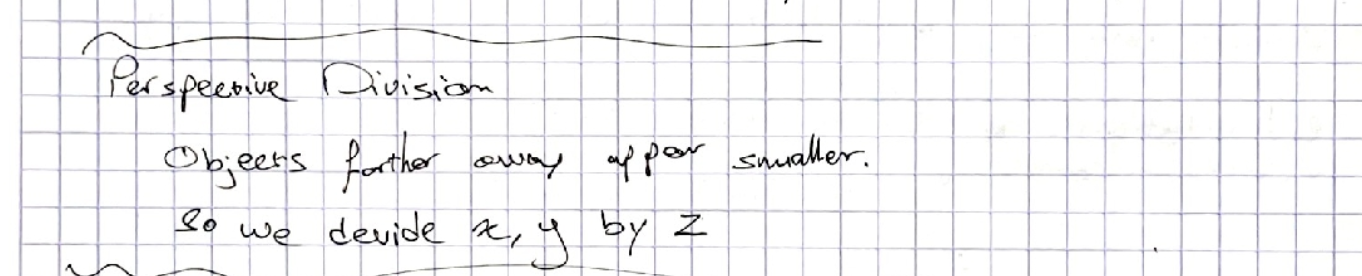 Perspective Division
Objects farther away appear smaller.
So we devide x, y by z